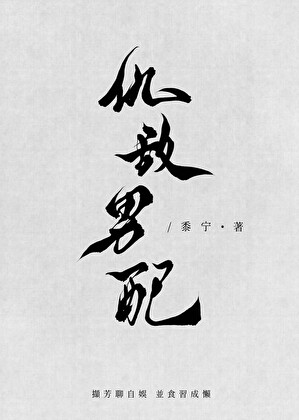 仇敌男配
/ 黍宁·著
擷芳聊自娛 並食習成懶